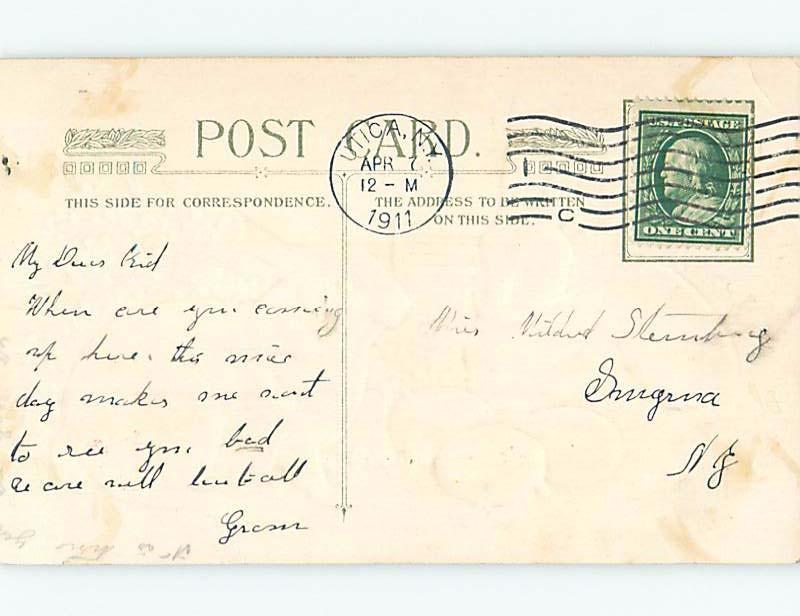 POST CARD.
UTICA, N.Y.
APR 7
12 - M
1911
C
U.S. POSTAGE
ONE CENT
THIS SIDE FOR CORRESPONDENCE.
THE ADDRESS TO BE WRITTEN
ON THIS SIDE.
My Dear Kid
When are you coming
up here. this nice
day makes me want
to see you bad
we are well
Gram
Miss Mildred Sternburg
Smyrna
N Y